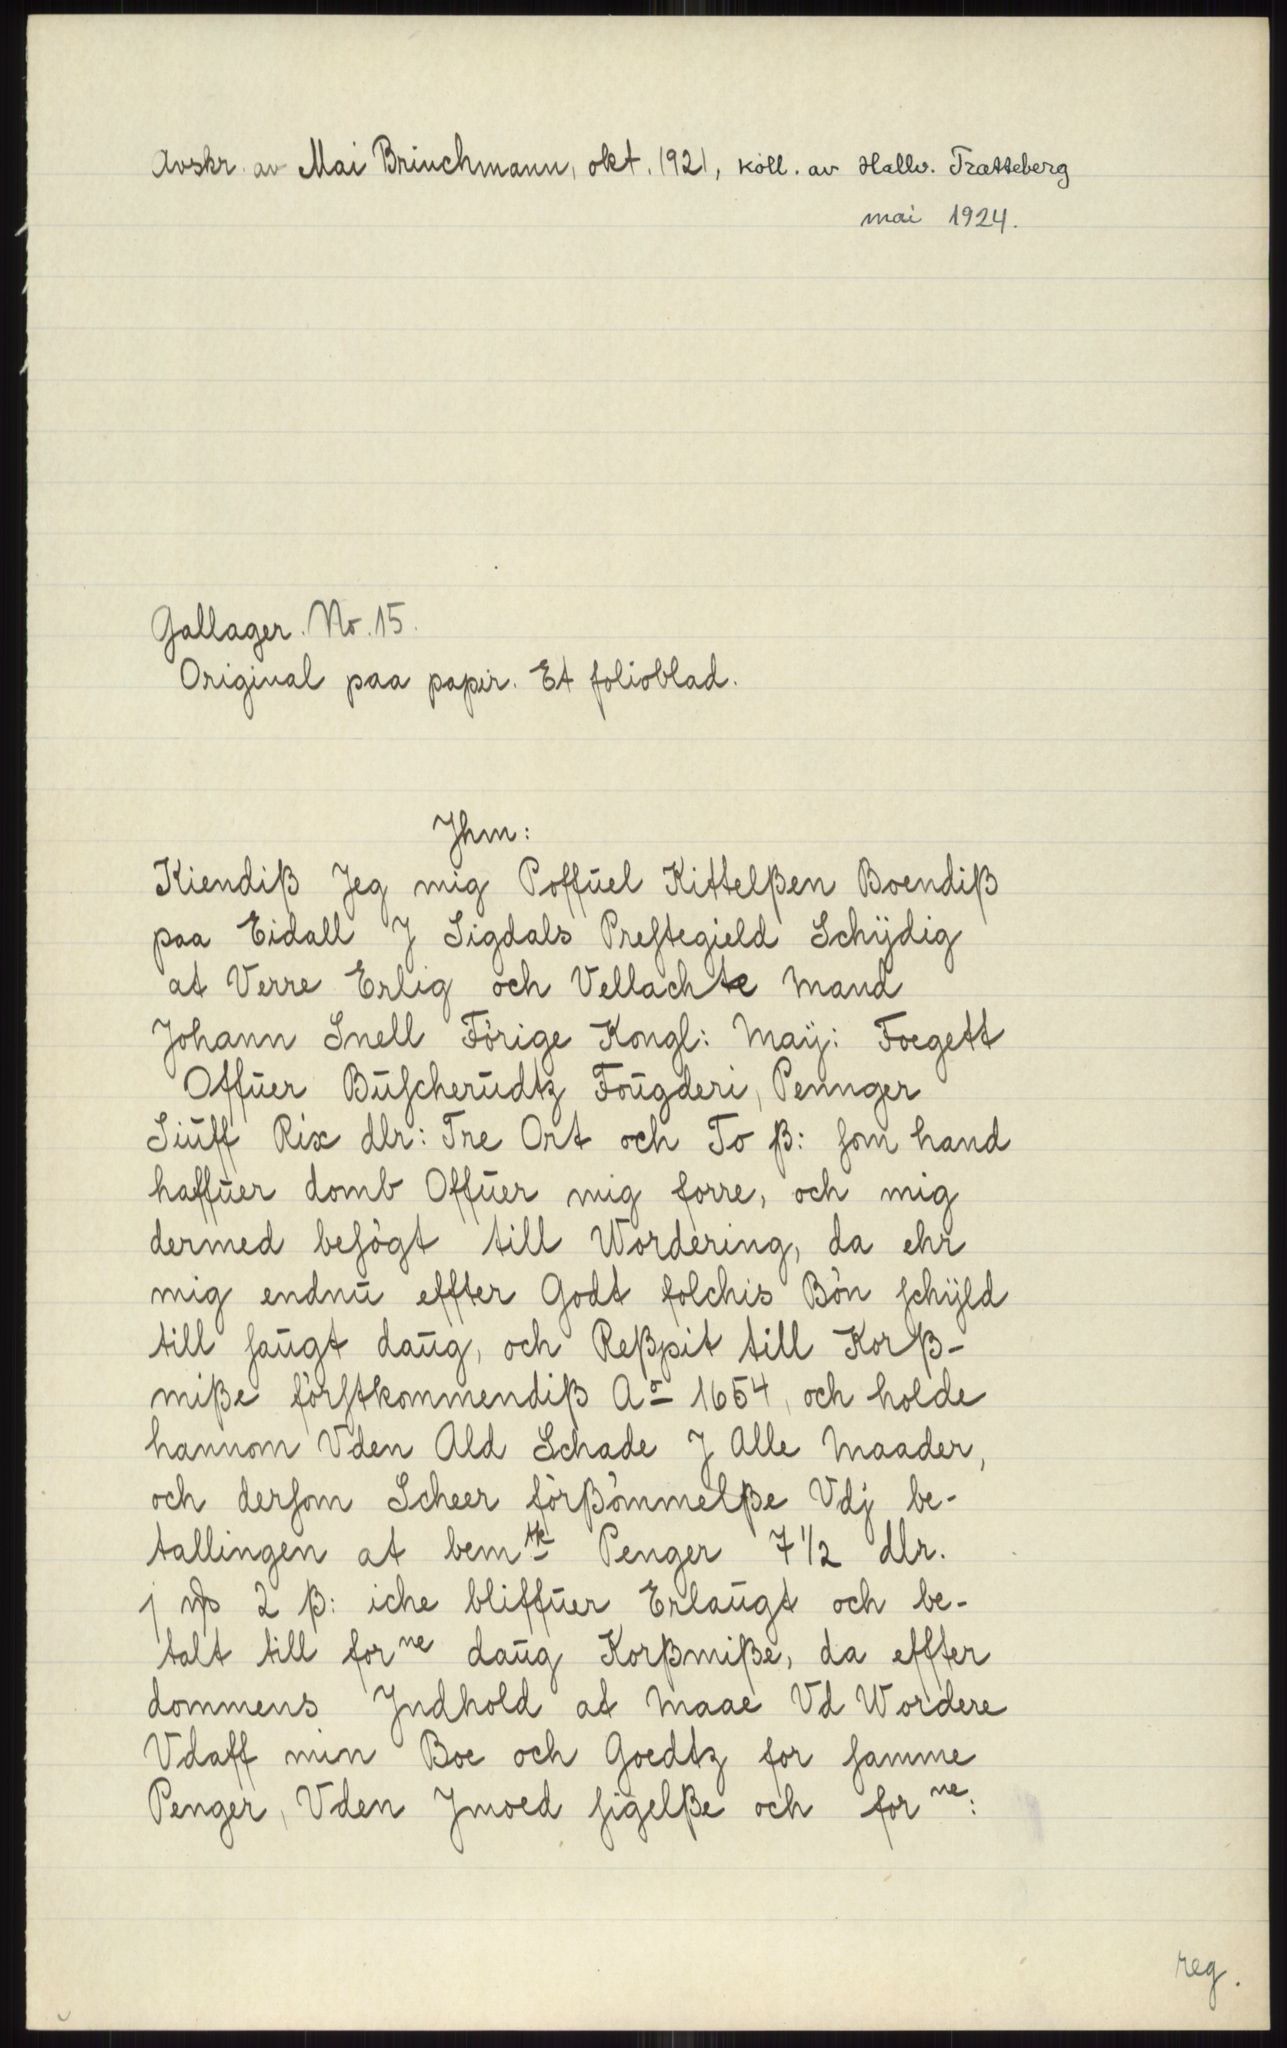 Avskr. av Mai Brinchmann, okt. 1921, koll. av Hallv. Trætteberg
mai 1924.
Gallager. No. 15.
Original paa papir. Et folioblad.
Jhm:
Kiendiß Jeg mig Poffuel Kittelßen Boendiß
paa Eidall J Sigdals Preſtegield Schÿdig
at Verre Erlig och Vellachte Mand
Johann Snell Förige Kongl: Maÿ: Foegett
Offuer Buſcherudtz Fougderi, Pennger
Siuff Rix dlr: Tre Ort och To ß: ſom hand
haffuer domb Offuer mig forre, och mig
dermed beſögt till Wordering, da ehr
mig endnu effter Godt folchis Bön ſchÿld
till ſaugt daug, och Reßpit till Korß-
miße förſtkommendiß Ao 1654, och holde
hannom Vden Ald Schade J Alle Maader,
och derſom Scheer förßömmelße Vdj be-
tallingen at bemte Penger 7 1/2 dlr.
j 2 ß: iche bliffuer Erlaugt och be-
talt till forne daug Korßmiße, da effter
dommens Jndhold at Maae Vd Wordere
Vdaff min Boe och Goedtz for ſamme
Penger, Vden Jmoed ſigelße och forne:
reg.